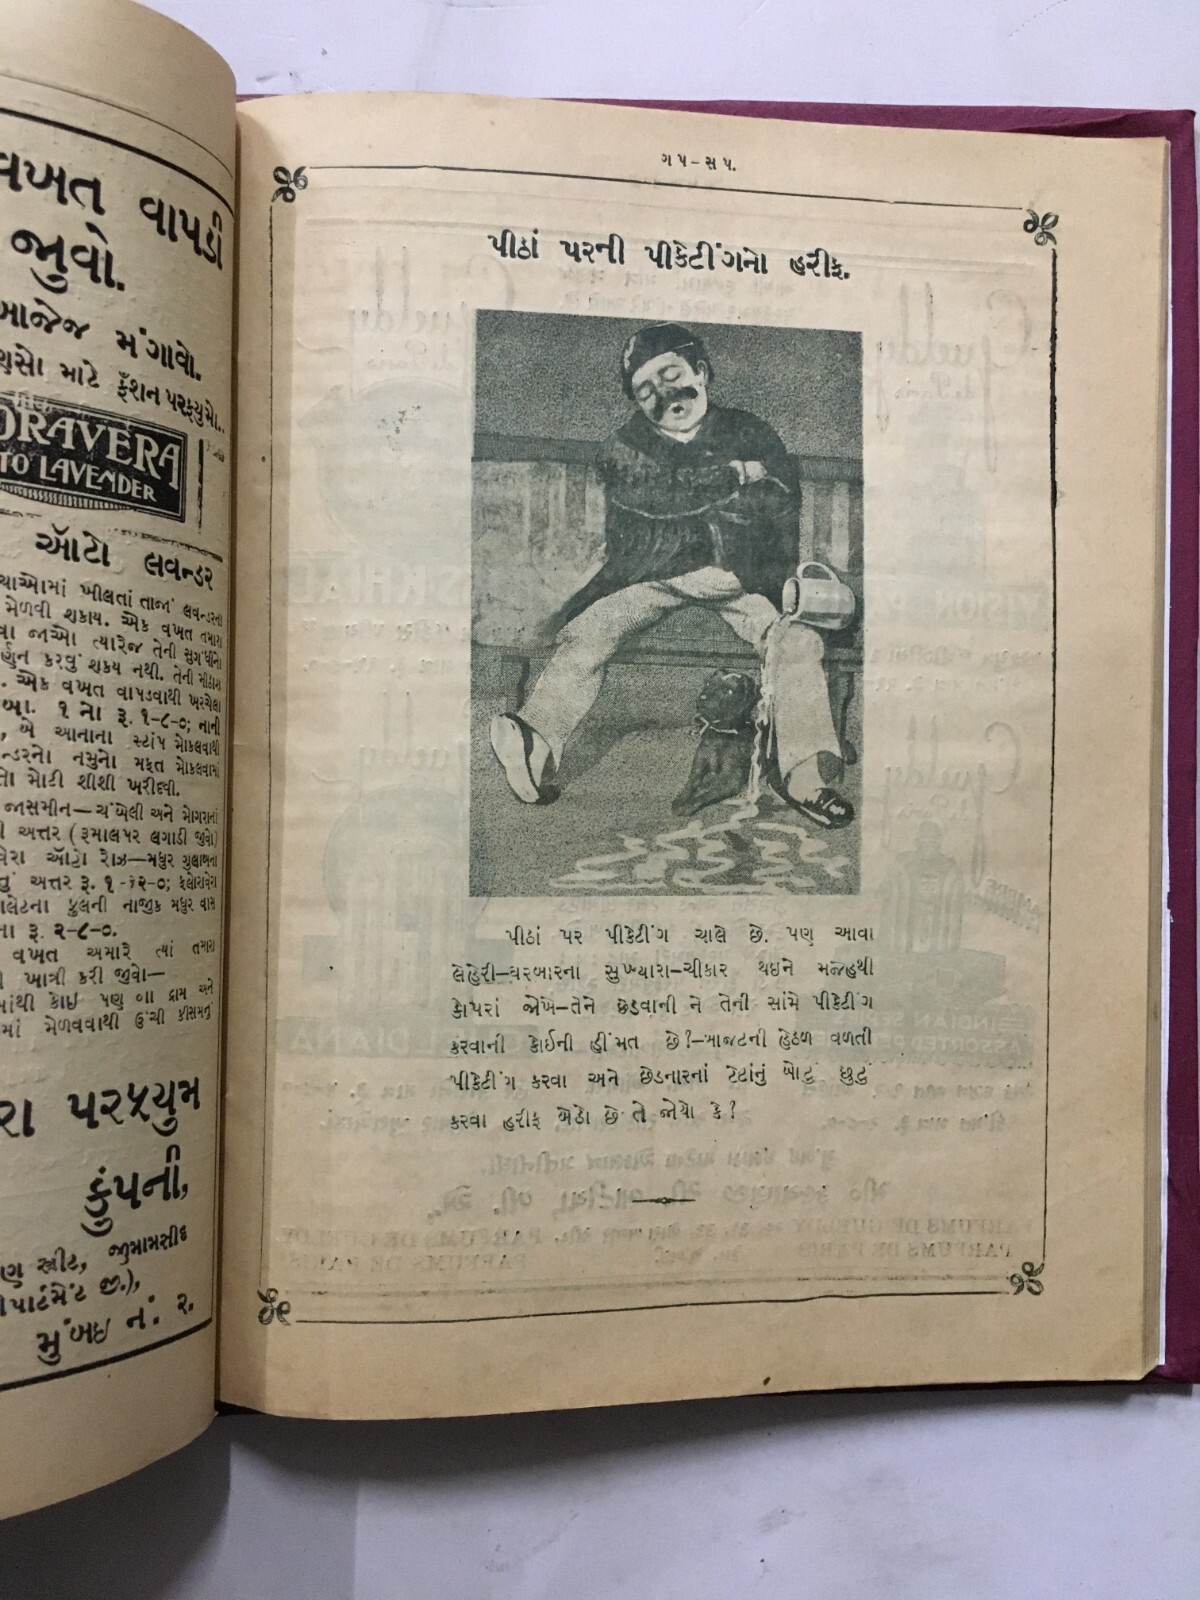 વખત વાપડી
જીુવો.
આજેજ મંગાવો.
માટે ફૅંશન પરફ્યુમો..
ORAVERA
TO LAVENDER
ઑટો લવન્ડર
ખીલતાં તાજાં લવન્ડરના
મેળવી શકાય. એક વખત તમારા
જાઓ ત્યારેજ તેની સુગંધીનો
કરવું શકય નથી. તેની મીઠાશ
. એક વખત વાપડવાથી ખરચેલા
૧ નો રૂ. ૧-૮-૦; નાની
, બે આનાના સ્ટાંપ મોકલવાથી
નમુનો મફત મોકલવામાં
મોટી શીશી ખરીદવી.
જાસમીન—ચંબેલી અને મોગરાનાં
અત્તર (રૂમાલપર લગાડી જીુવો)
ઑટો રોઝ—મધુર ગુલાબના
અત્તર રૂ. ૧-૧૨-૦; ફ્લોરાવેરા
ફુલની નાજીુક મધુર વાસ
રૂ. ૨-૮-૦.
વખત અમારે ત્યાં તમારા
ખાત્રી કરી જીુવો—
કોઇ પણ ૦ાા ડ્રામ અને
મેળવવાથી ઉંચી કીસમનું
પરફ્યુમ
કુંપની,
સ્ત્રીટ, જીુમામસીદ
જી.),
મુંબઇ નં. ૨.
ગપ-સપ.
પીઠાં પરની પીકેટીંગનો હરીફ.
પીઠાં પર પીકેટીંગ ચાલે છે. પણ આવા
લેહેરી-ઘરબારના સુખ્યારા-ચીકાર થઇને મજેહથી
કોપરાં જોખે-તેને છેડવાની ને તેની સાંમે પીકેટીંગ
કરવાની કોઇની હીંમત છે?-બાજટની હેઠળ વળતી
પીકેટીંગ કરવા અને છેડનારનાં ટેટાંનું બોટું છુટું
કરવા હરીફ બેઠો છે તે જોયો કે?